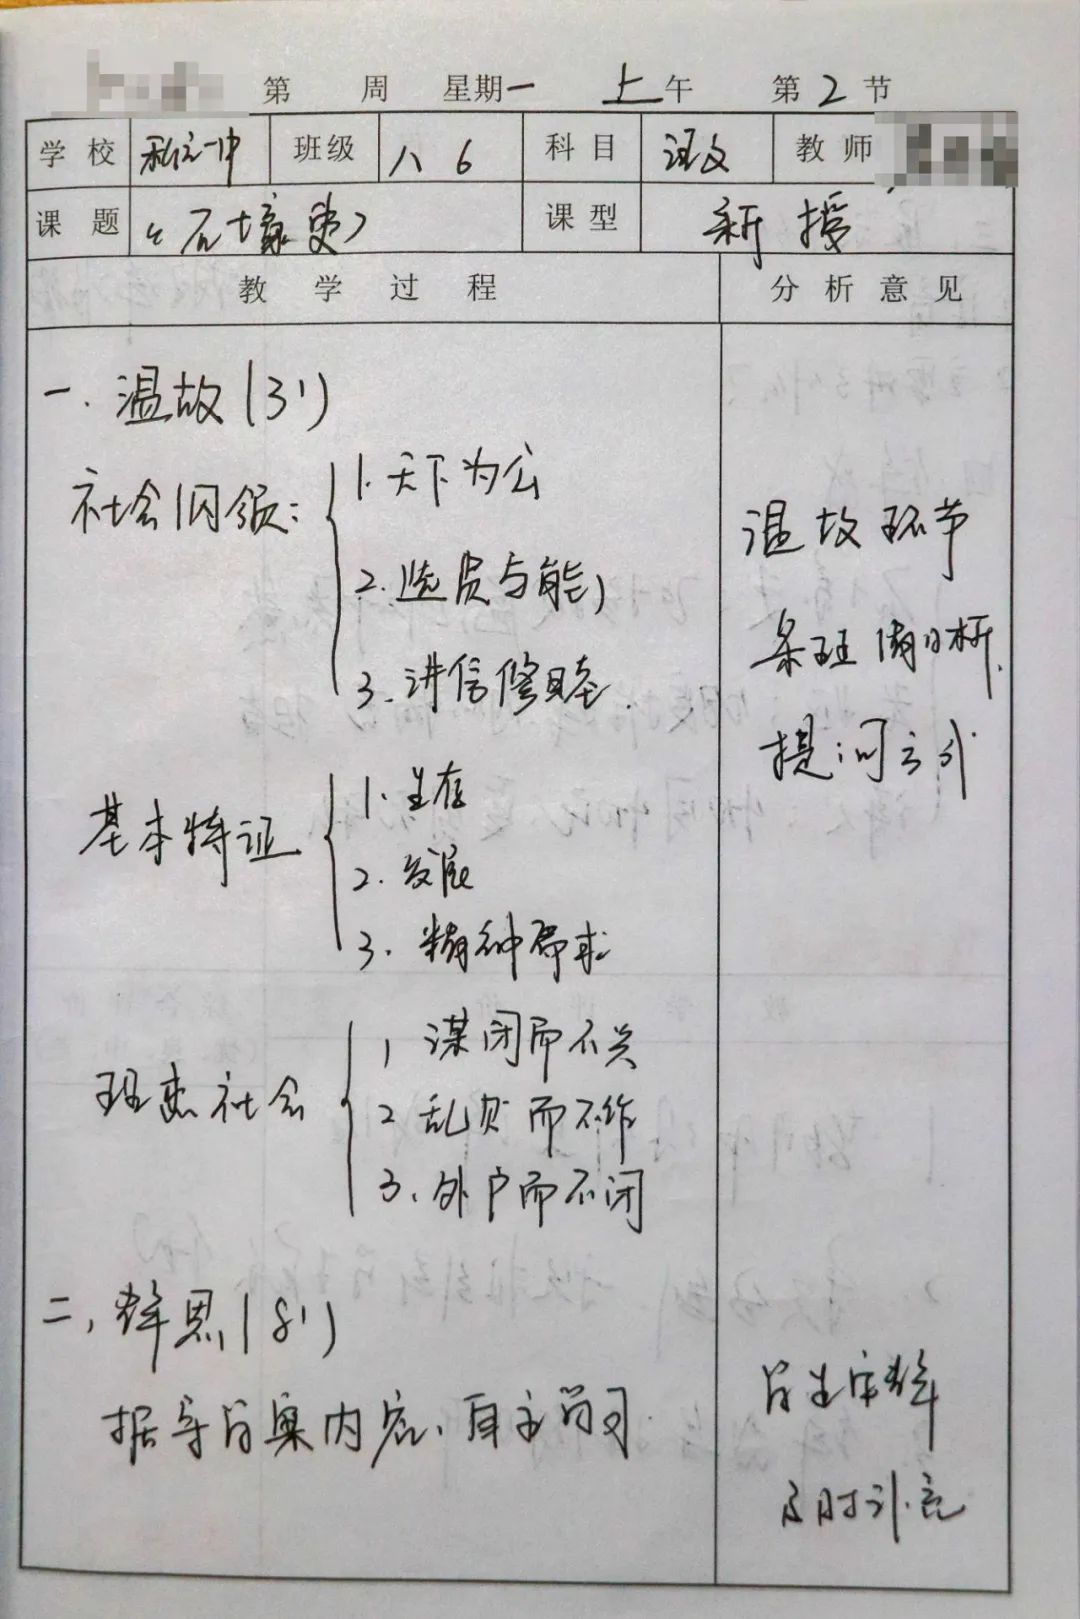 第 周 星期一 上午 第2节
学校 一中 班级 八6 科目 语文 教师
课题 《石壕吏》 课型 新授
教学过程 分析意见
一.温故(3')
社会纲领:
1.天下为公
2.选贤与能
3.讲信修睦.
基本特证
1.生存
2.发展
3.精神需求
理想社会
1 谋闭而不兴
2 乱贼而不作
3、外户而不闭
二,群思(8')
据导学案内容、自主学习.
温故环节
条理清晰.
提问方式
及时补充